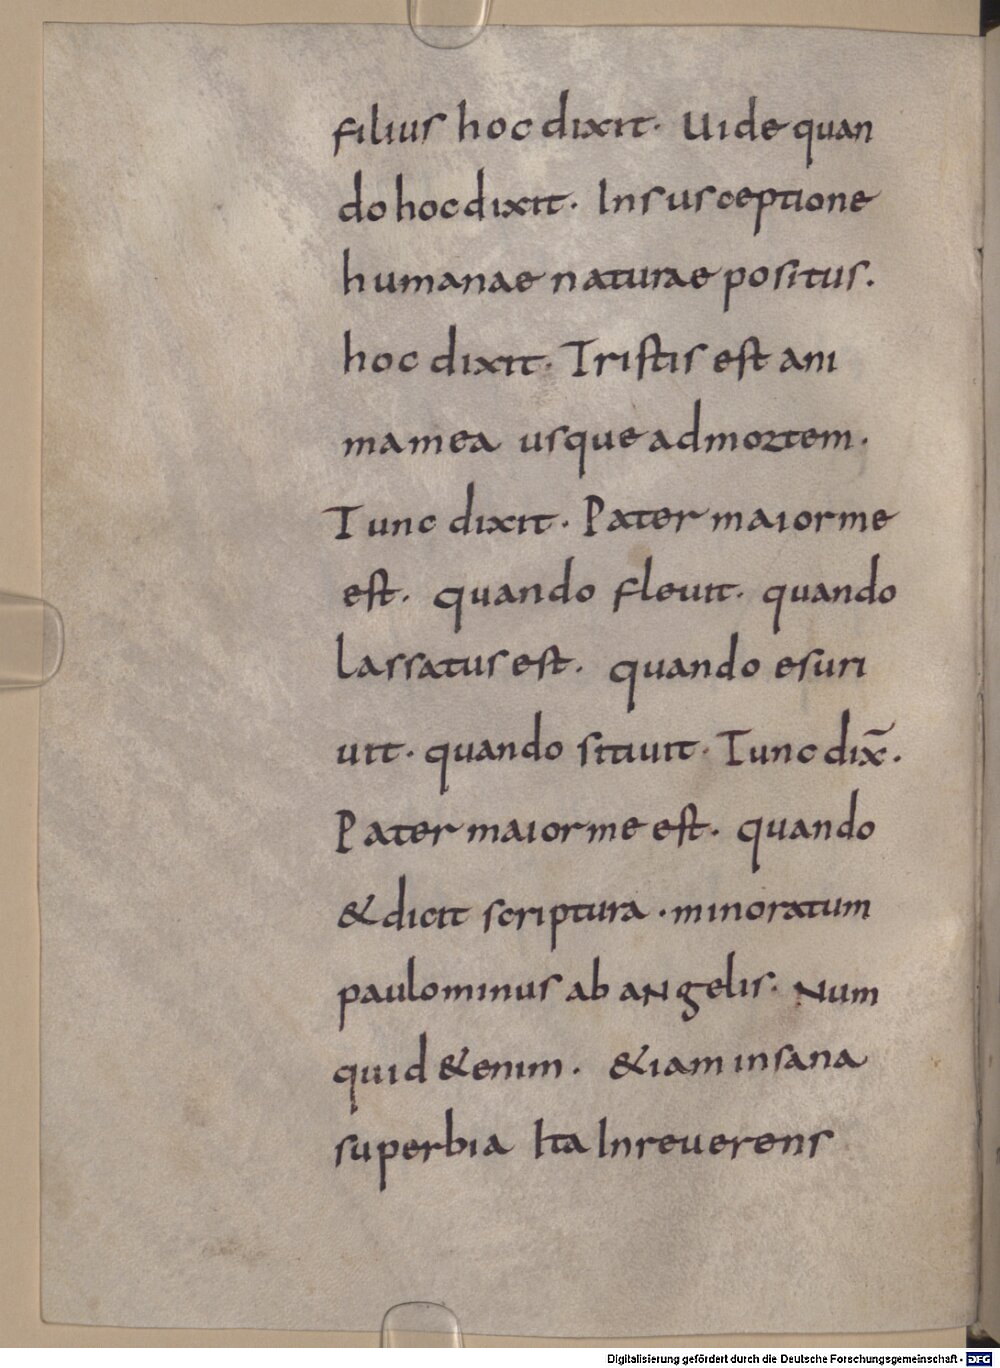 filius hoc dixit. Uide quan
do hoc dixit. In susceptione
humanae naturae positus.
hoc dixit. Tristis est ani
ma mea usque ad mortem.
Tunc dixit. Pater maior me
est. quando fleuit. quando
lassatus est. quando esuri
uit. quando sitiuit. Tunc dix̄.
Pater maior me est. quando
& dicit scriptura. minoratum
paulominus ab angelis. Num
quid &enim. &iam insana
superbia Ita Inreuerens
Digitalisierung gefördert durch die Deutsche Forschungsgemeinschaft - DFG